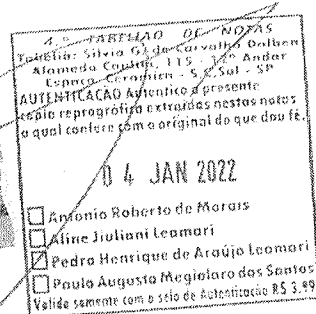 4.º TABELIÃO DE NOTAS
Tabeliã: Silvia G. de Carvalho Dalben
Alameda Caulim, 115 - 12º Andar
Espaço Cerâmica - S.C.Sul - SP
AUTENTICAÇÃO Autentico a presente
copia reprográfica extraídas nestas notas
a qual confere com o original do que dou fé.
0 4 JAN 2022
Antonio Roberto de Morais
Aline Jiuliani Leamari
Pedro Henrique de Araújo Leamari
Paulo Augusto Megiolaro dos Santos
Valido somente com o selo de Autenticação R$ 3,99